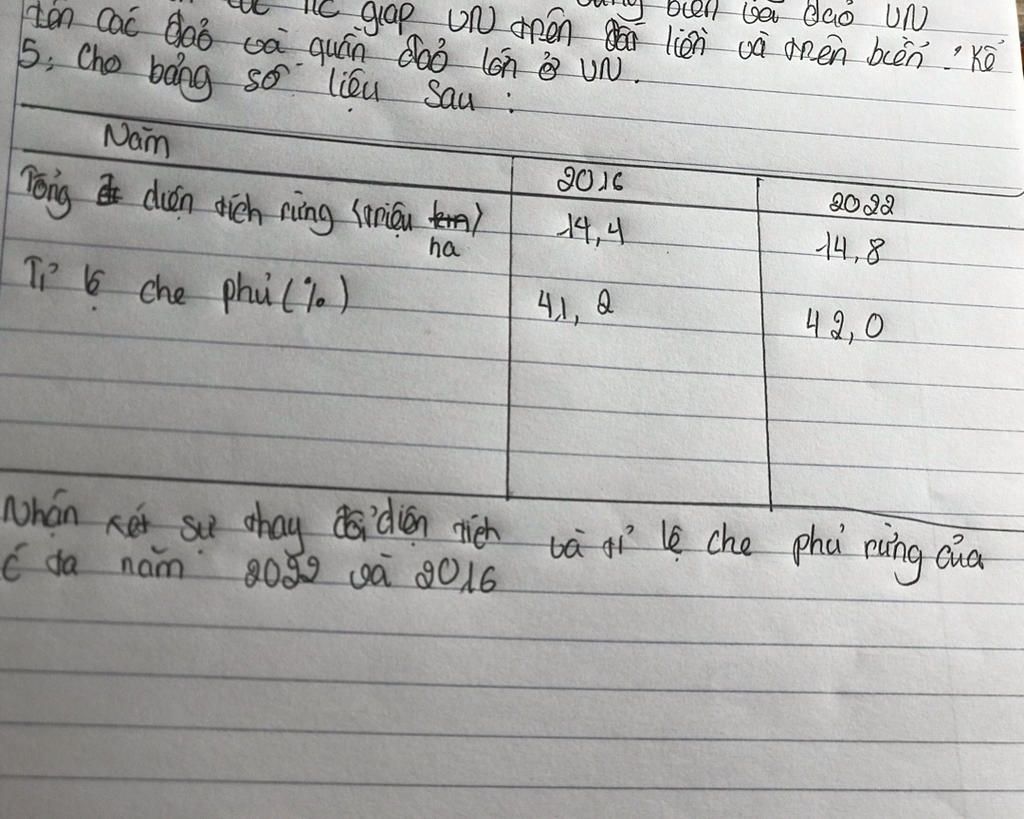 giáp VN trên đất liền và trên biển. Kể
tên các đảo và quần đảo lớn ở VN.
5, Cho bảng số liệu sau :
Năm 2016 2022
Tổng diện tích rừng (triệu ha) 14,4 14,8
Tỉ lệ che phủ (%) 41,2 42,0
Nhận xét sự thay đổi diện tích và tỉ lệ che phủ rừng của
ta năm 2022 và 2016